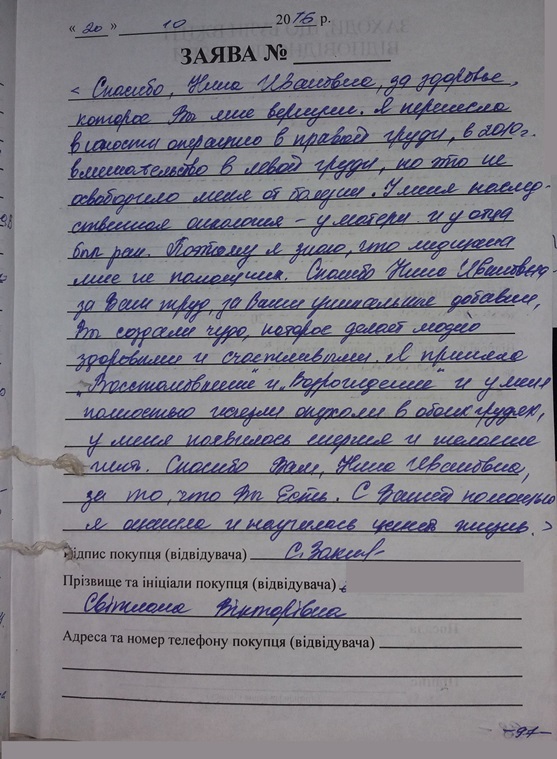 « 20 » 10 2016 р.
ЗАЯВА №
« Спасибо, Нина Ивановна, за здоровье,
которое Вы мне вернули. Я перенесла
в юности операцию в правой груди, в 2010г.
вмешательство в левой груди, но это не
освободило меня от болезни. У меня наслед-
ственная онкология – у матери и у отца
был рак. Поэтому я знаю, что медицина
мне не помощник. Спасибо Нина Ивановна
за Ваш труд, за Ваши уникальные добавки,
Вы создали чудо, которое делает людей
здоровыми и счастливыми. Я приняла
„Восстановление" и „Возрождение" и у меня
полностью исчезли опухоли в обоих грудях,
у меня появилось энергия и желание
жить. Спасибо Вам, Нина Ивановна,
за то, что Вы Есть. С Вашей помощью
я ожила и научилась ценить жизнь. »
Підпис покупця (відвідувача)
Прізвище та ініціали покупця (відвідувача)
Світлана Вікторівна
Адреса та номер телефону покупця (відвідувача)
-97-